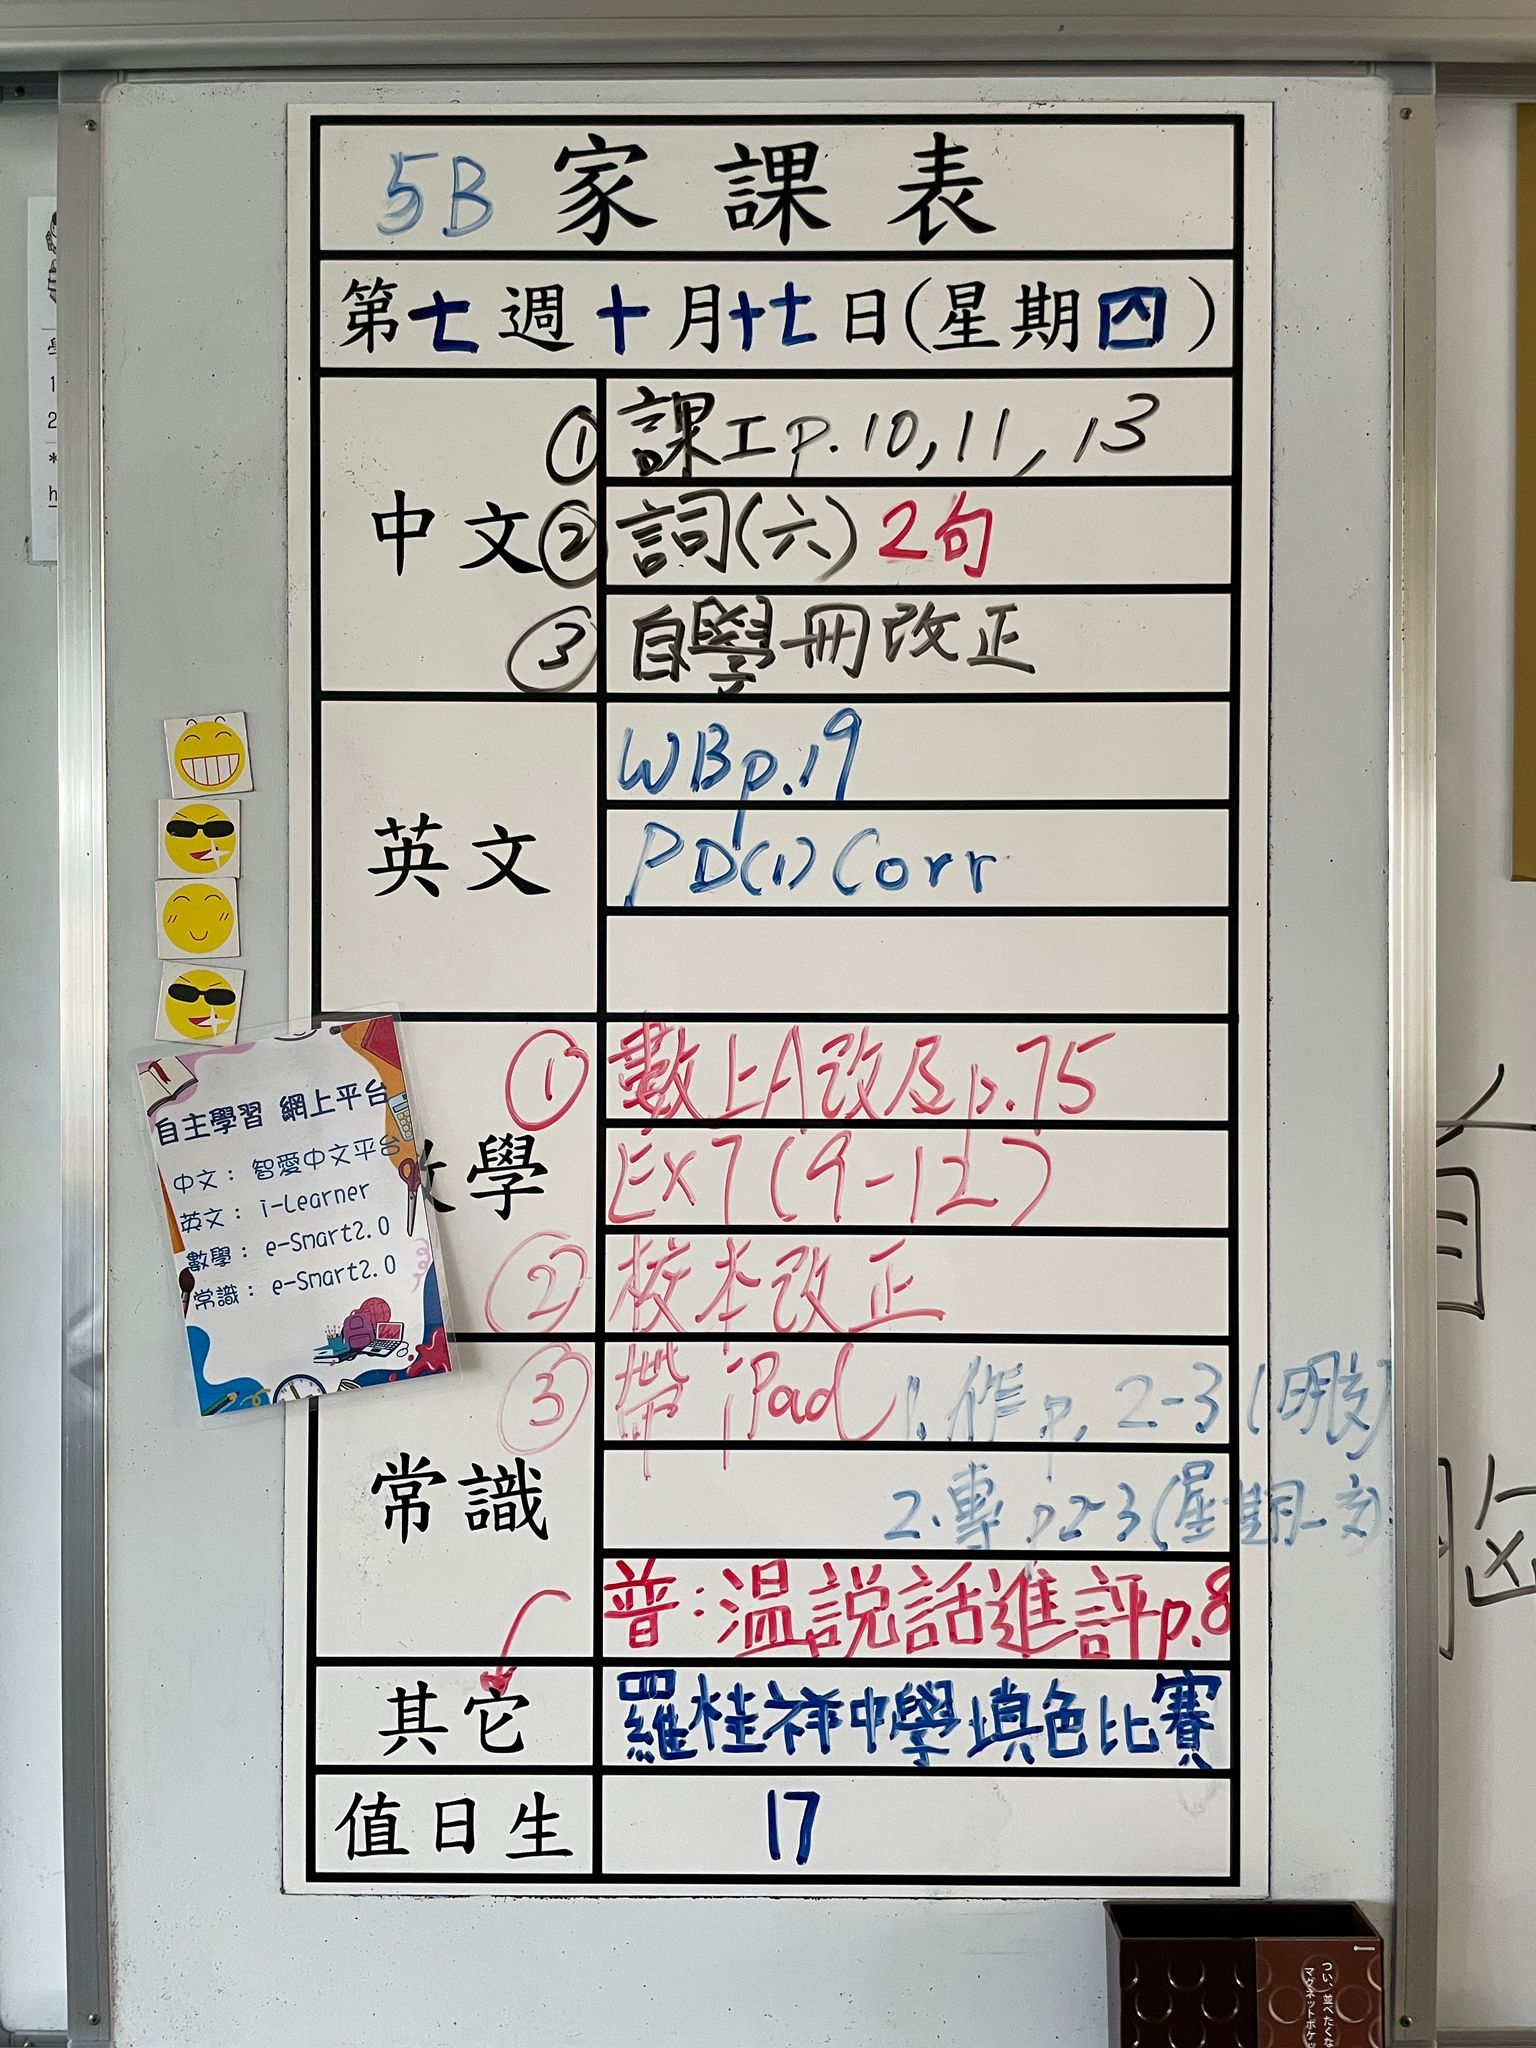 5B 家課表
第七週十月十七日(星期四)
中文
① 課工p.10,11,13
② 詞(六) 2句
③ 自學冊改正
英文
WBp.19
PD(1) Corr
學
① 數上A改及p.75
Ex7(9-12)
② 校本改正
③ 帶 iPad
常識
1.作p.2-3(明交)
2.專p2-3(星期一交)
普:溫說話進評p.8
其它
羅桂祥中學填色比賽
值日生
17
自主學習 網上平台
中文: 智愛中文平台
英文: i-Learner
數學: e-Smart2.0
常識: e-Smart2.0
つい、並べたくな
マグネットポケッ